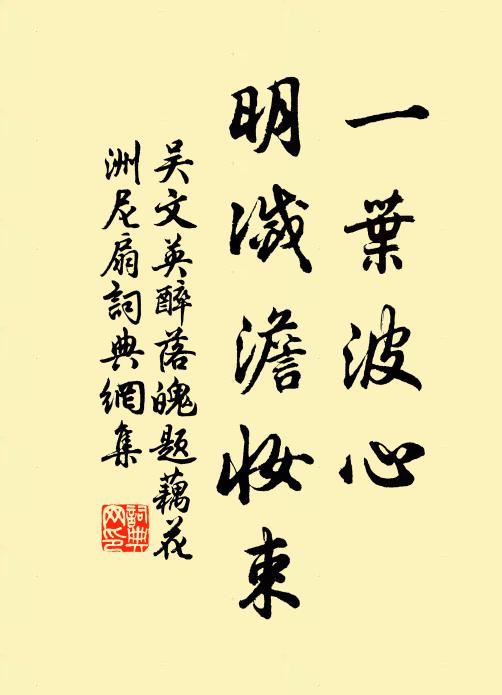 一葉波心
明滅澹妝束
吴文英醉落魄题藕花
洲尼扇詞典網集
詞典
网印